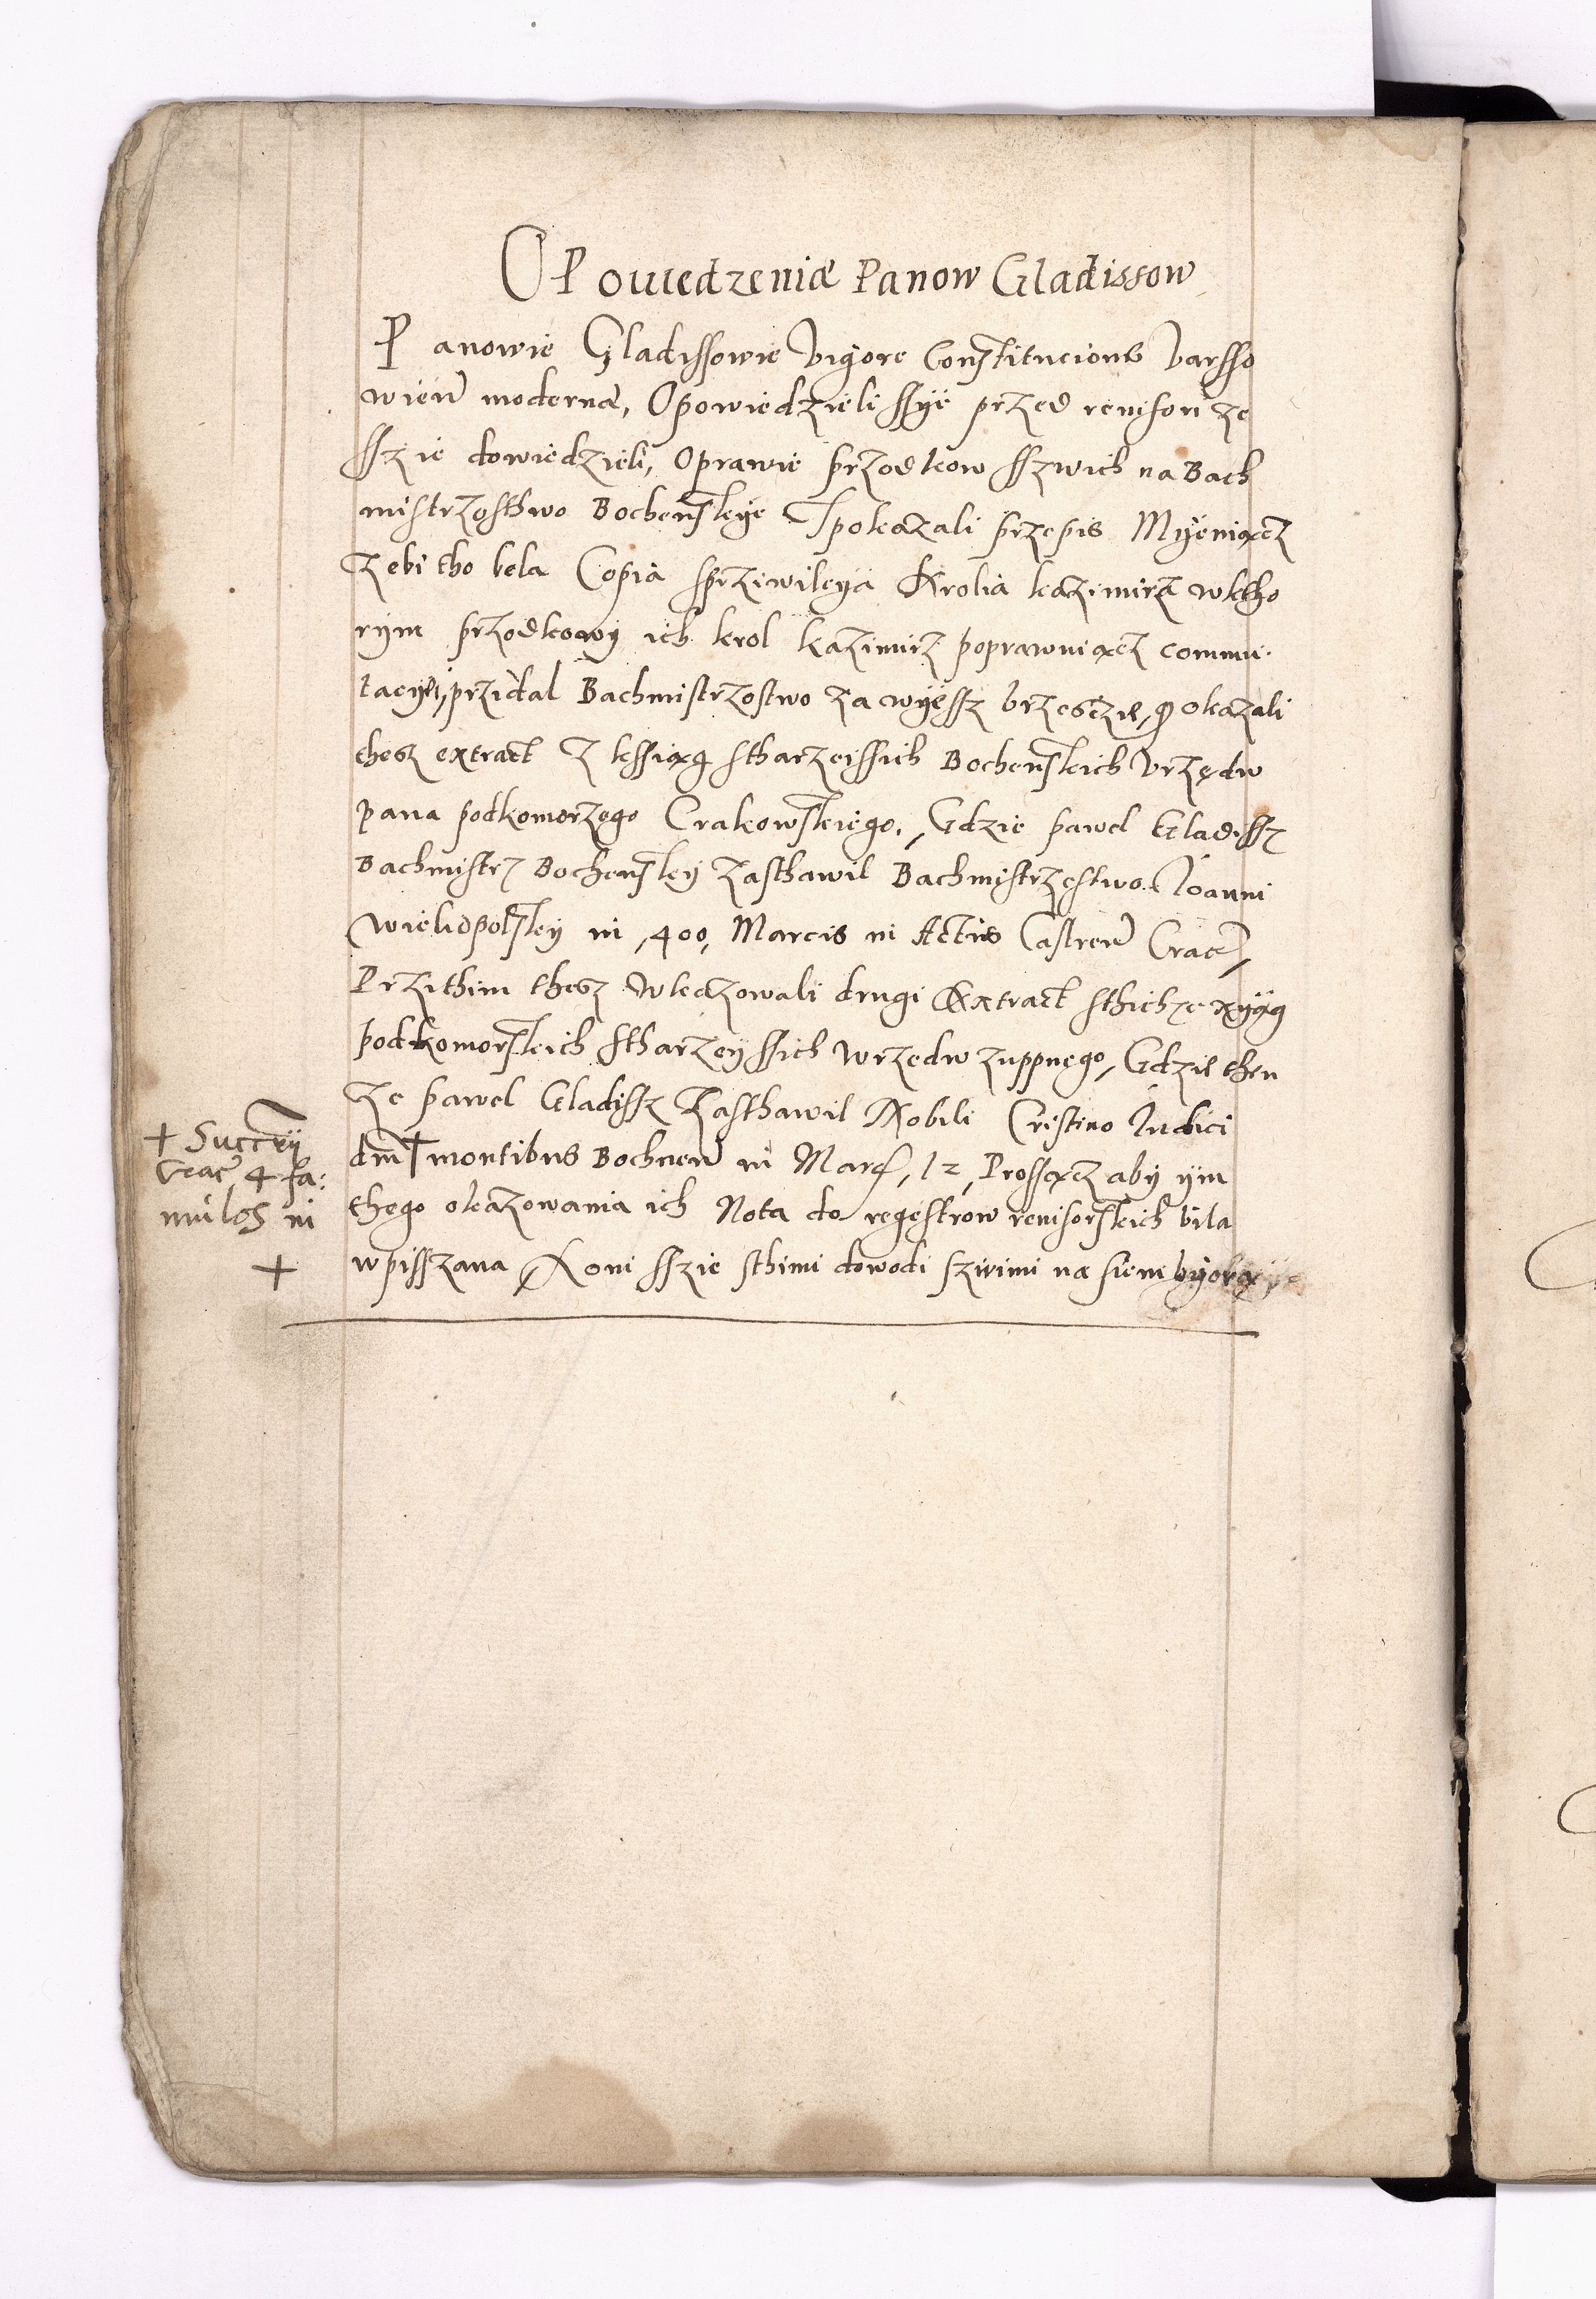 OPowiedzenie Panow Gladissow
Panowie Gladissowie vigore Constitucionis varsso
wien moderne, Opowiedzieli ssye przed revisori ze
sszie dowiedzieli, Oprawie przodkow sszwich na Bach
mistrzosthwo Bochenskye Ipokazali przepis Myeniącz
zebi tho bela Copia sprziwileya Krolia kazimirza wktho
rym przodkowy ich krol kazimirz poprawuiącz commu-
tacyei, przidal Bachmistrzostwo za wyessz brzesczie, Pokazali
thesz extract Z kssiąg stharzeissich Bochenskich vrzędw
pana podkomorzego Crakowskiego, Gdzie pawel Gladissz
Bachmistrz Bochensky zasthawil Bachmistrzestwo Joanni
wielidpolsky in 400, Marcis in Actis Castren Crac,
Przithim thesz wkazowali drugi Extract sthichze xyąg
podkomorskich stharzeyssich wrzedw zuppnego, Gdzie then
ze pawel Gladissz zasthawil Nobili Cristino Iudici
dm + montibus Bochnen in Marc, 12, Prossącz aby ym
thego okazowania ich Nota do regestrow revisorskich bila
wpisszana Aoni sszie sthimi dowodi szwimi na siem
+ Succ
Crac 4 fa:
mulos in
+